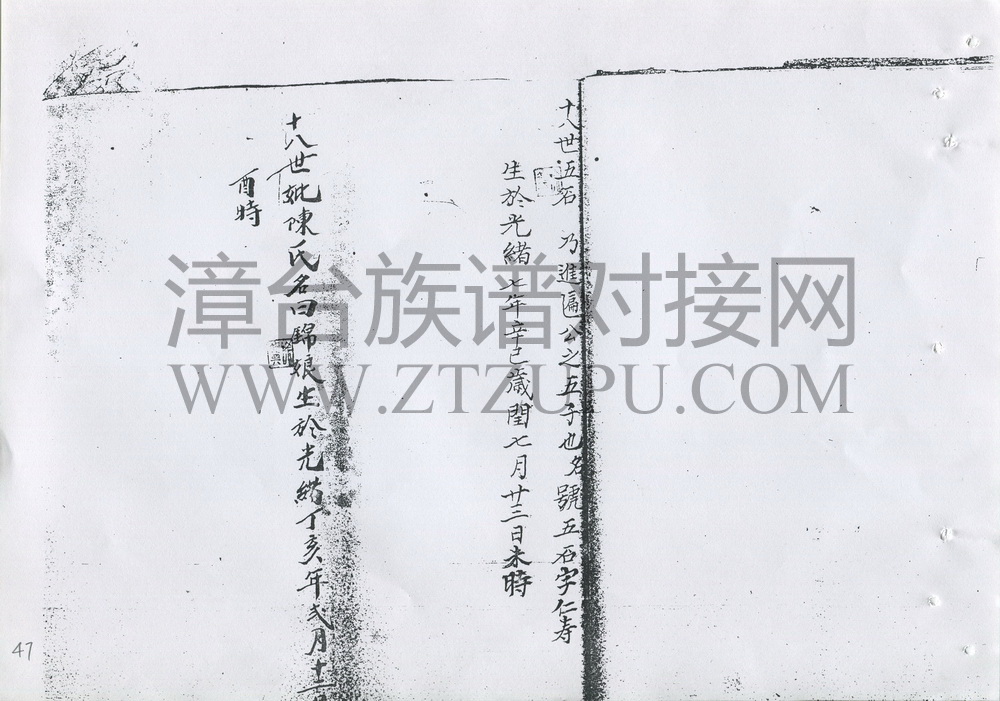 十八世五石 乃進區公之五子也名號五石字仁寿
生於光緒七年辛巳歲閏七月廿三日未時
十八世妣陳氏名曰錦娘生於光緒丁亥年弍月十一
酉時
漳台族谱对接网
WWW.ZTZUPU.COM
47